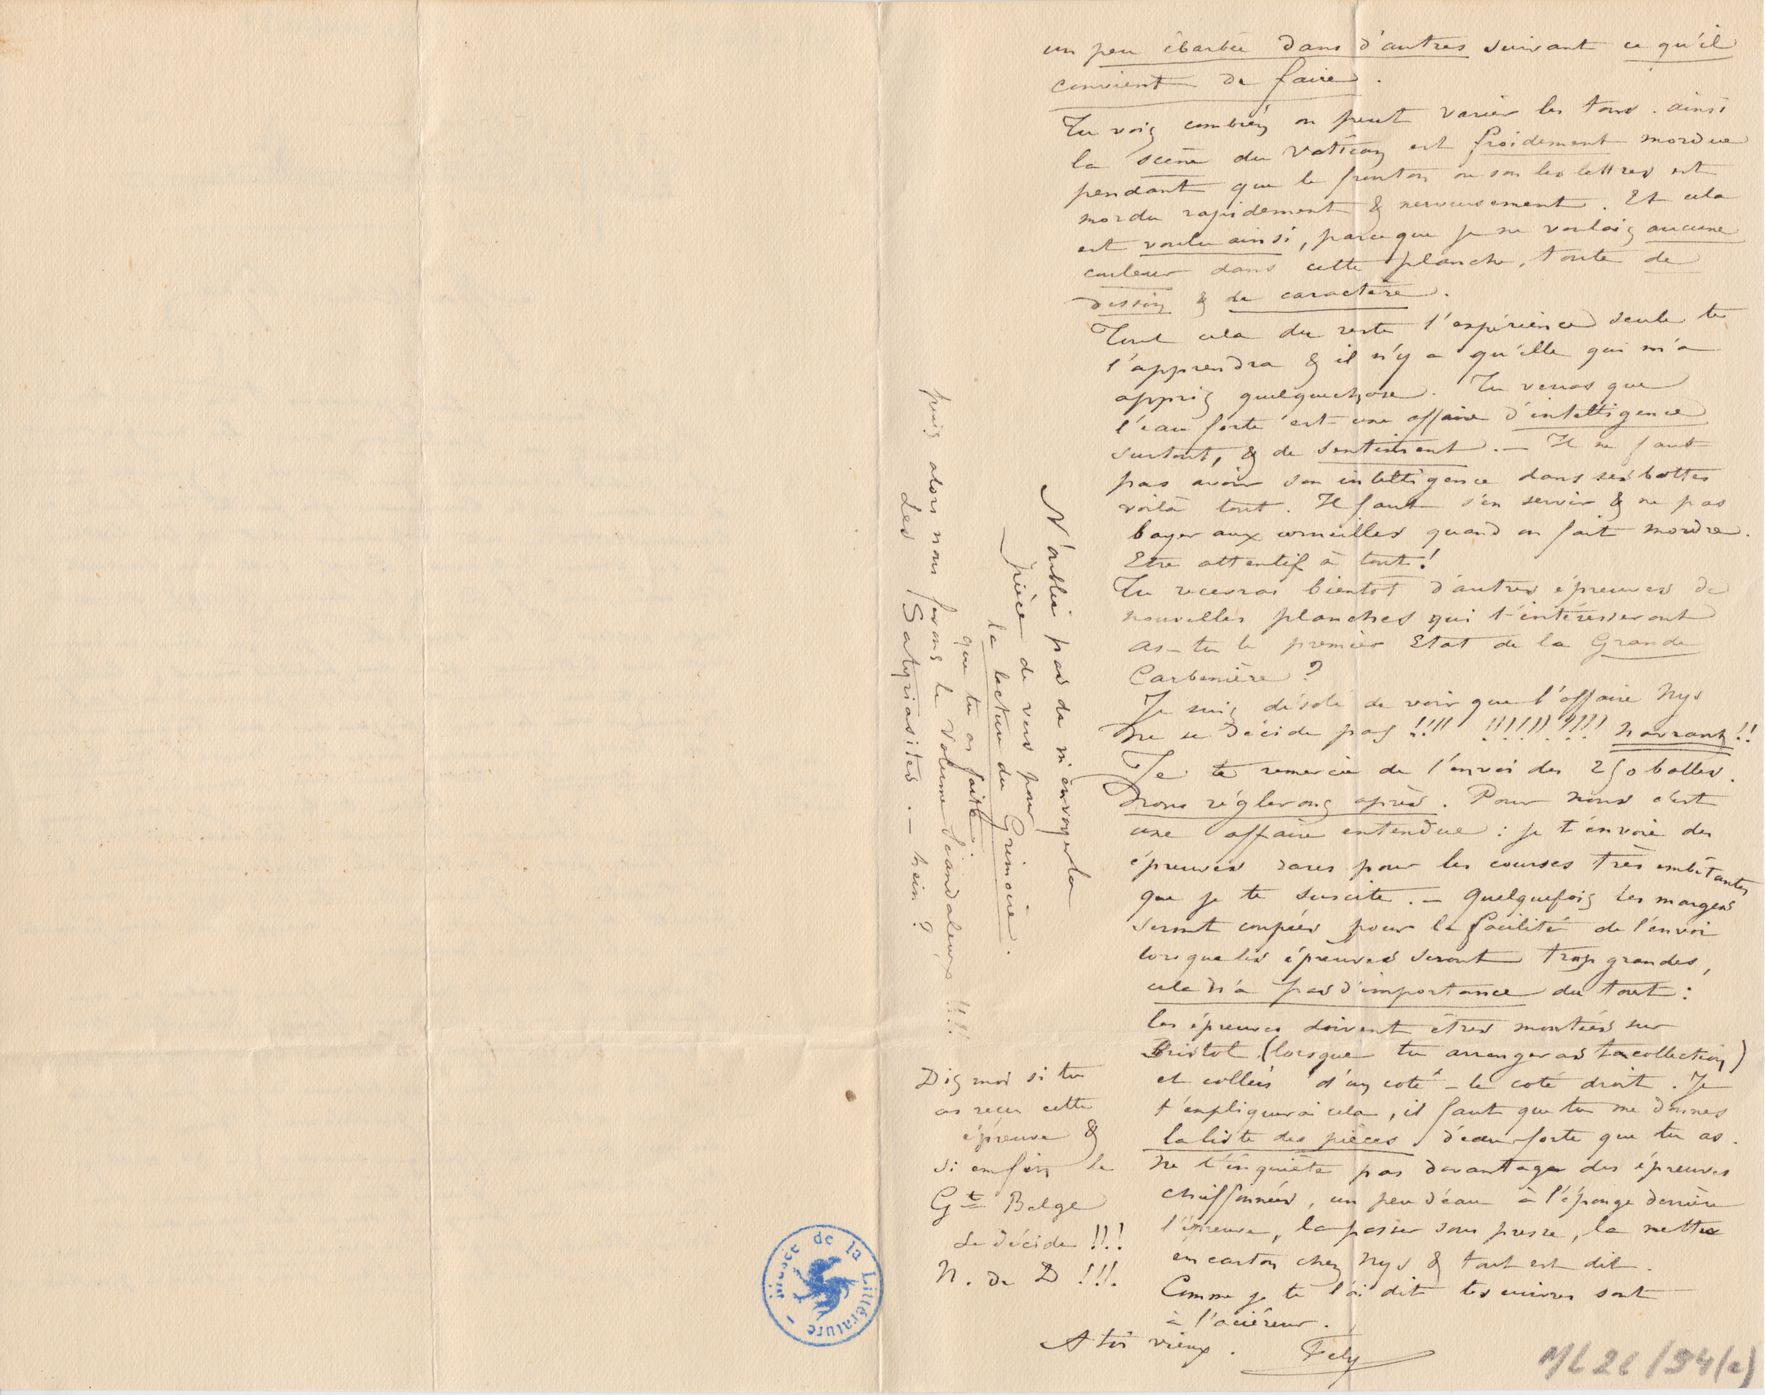 un peu ébarbée dans d'autres suivant ce qu'il
convient de faire.
Tu vois combien on peut varier les tons. ainsi
la scène du Vatican est froidement mordue
pendant que le fronton ou son les lettres est
mordu rapidement & nerveusement. Et cela
est voulu ainsi, parceque je ne voulais aucune
couleur dans cette planche, toute de
dessin & de caractère.
Tout cela du reste l'expérience seule te
l'apprendra & il n'y a qu'elle qui m'a
appris quelquechose. Tu verras que
l'eau forte est une affaire d'intelligence
surtout, & de sentiment. — Il ne faut
pas avoir son intelligence dans ses bottes
voilà tout. Il faut s'en servir & ne pas
bayer aux corneilles quand on fait mordre.
Etre attentif à tout!
Tu recevras bientot d'autres épreuves de
nouvelles planches qui t'intéresseront
as-tu le premier Etat de la Grande
Carbonière?
Je suis désolé de voir que l'affaire Nys
ne se décide pas!!!! !!!!!!!!!! Navrant!!
Je te remercie de l'envoi des 250 balles.
Nous réglerons après. Pour nous c'est
une affaire entendue: je t'envoie des
épreuves rares pour les courses très embêtantes
que je te suscite. — Quelquefois les marges
seront coupées pour la facilité de l'envoi
lorsque les épreuves seront trop grandes,
cela n'a pas d'importance du tout:
les épreuves doivent êtres montées sur
Bristol (lorsque tu arrangeras ta collection)
et collées d'un coté – le coté droit. Je
t'expliquerai cela, il faut que tu me donnes
la liste des pièces d'eau-forte que tu as.
Ne t'inquiète pas davantage des épreuves
chiffonnées, un peu d'eau à l'éponge derrière
l'épreuve, la passer sous presse, la mettre
en carton chez Nys & tout est dit.
Comme je te l'ai dit tes cuivres sont
à l'aciéreur.
A toi vieux. Fely
N'oublie pas de m'envoyer la
pièce de vers pour
la lecture du Grimoire.
que tu as faite
puis alors nous ferons le volume scandaleux!!!!
Les Satyriasites. — hein?
Dis moi si tu
as reçu cette
épreuve &
si enfin le
Gt Belge
se décide!!!
N. de D!!!.
Musée de la Littérature –
ML 26/94(a)